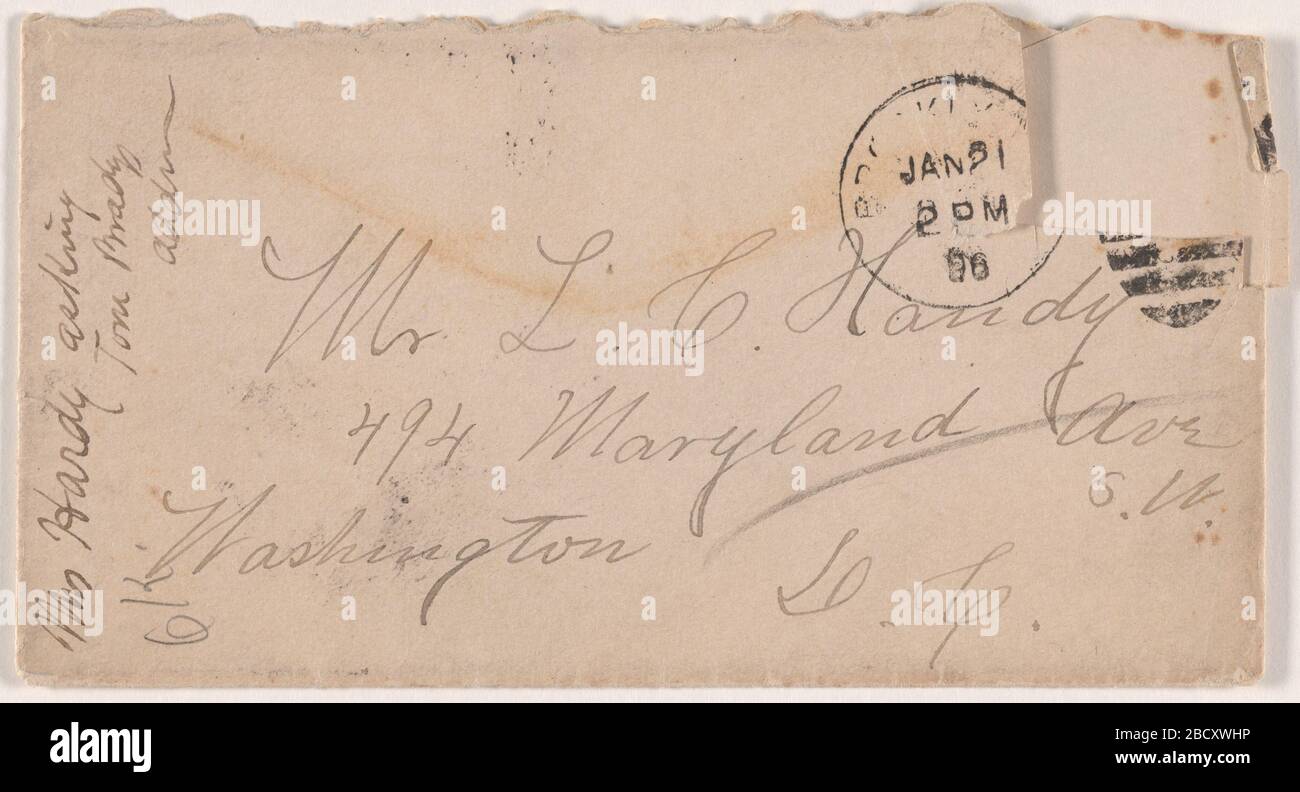 BROOKLYN
JAN 31
2 PM
96
Mr. L. C. Handy
494 Maryland Ave
S.W.
Washington
D. C.
Mrs Hardy asking
Tom Brady
alamy
Image ID: 2BCXWHP
www.alamy.com